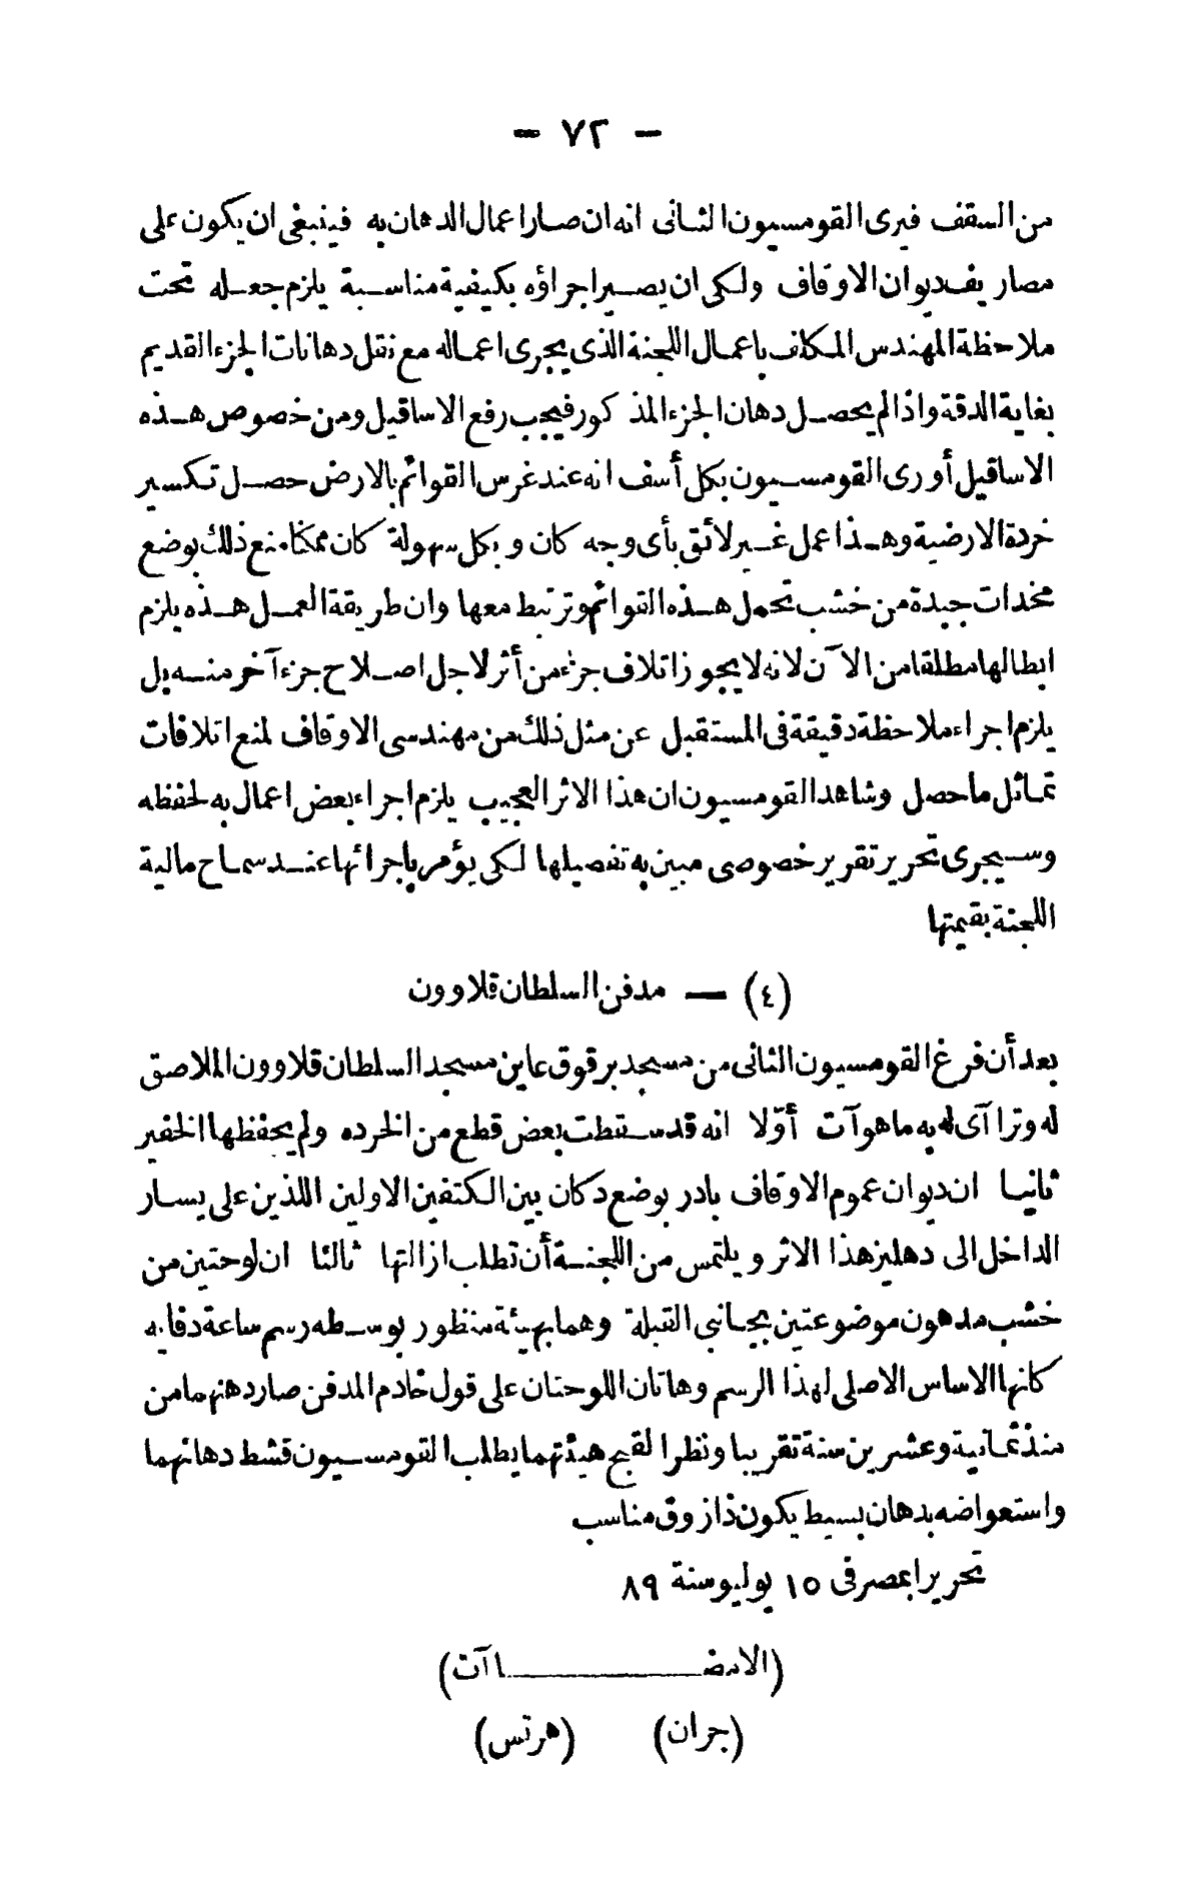 — ٧٢ —
من السقف فيرى القومسيون الثانى انه ان صار اعمال الدهان به فينبغى ان يكون على
مصاريف ديوان الاوقاف ولكى ان يصير اجراؤه بكيفية مناسبة يلزم جعله تحت
ملاحظة المهندس المكلف باعمال اللجنة الذى يجرى اعماله مع نقل دهانات الجزء القديم
بغاية الدقة واذا لم يحصل دهان الجزء المذكور فيجب رفع الاساقيل ومن خصوص هذه
الاساقيل أورى القومسيون بكل أسف انه عند غرس القوائم بالارض حصل تكسير
خردة الارضية وهذا عمل غير لائق بأى وجه كان وبكل سهولة كان ممكنا منع ذلك بوضع
مخدات جيدة من خشب تحمل هذه القوائم وترتبط معها وان طريقة العمل هذه يلزم
ابطالها مطلقا من الآن لانه لا يجوز اتلاف جزء من أثر لاجل اصلاح جزء آخر منه بل
يلزم اجراء ملاحظة دقيقة فى المستقبل عن مثل ذلك من مهندسى الاوقاف لمنع اتلافات
تماثل ماحصل وشاهد القومسيون ان هذا الاثر العجيب يلزم اجراء بعض اعمال به لحفظه
وسيجرى تحرير تقرير خصوصى مبين به تفصيلها لكى يؤمر باجرائها عند سماح مالية
اللجنة بقيمتها
(٤) — مدفن السلطان قلاوون
بعد أن فرغ القومسيون الثانى من مسجد برقوق عاين مسجد السلطان قلاوون الملاصق
له وتراآى له به ما هو آت أوّلا انه قد سقطت بعض قطع من الخرده ولم يحفظها الخفير
ثانيا ان ديوان عموم الاوقاف بادر بوضع دكان بين الكتفين الاولين اللذين على يسار
الداخل الى دهليز هذا الاثر ويلتمس من اللجنة أن تطلب ازالتها ثالثا ان لوحتين من
خشب مدهون موضوعتين بجانبى القبلة وهما بهيئة منظور بوسطه رسم ساعة دقاقه
كانها الاساس الاصلى لهذا الرسم وهاتان اللوحتان على قول خادم المدفن صار دهنهما من
منذ ثمانية وعشرين سنة تقريبا ونظرا لقبح هيئتهما يطلب القومسيون قشط دهانهما
واستعواضه بدهان بسيط يكون ذا زوق مناسب
تحريرا بمصر فى ١٥ يوليو سنة ٨٩
(الامضاآت)
(جران) (هرتس)